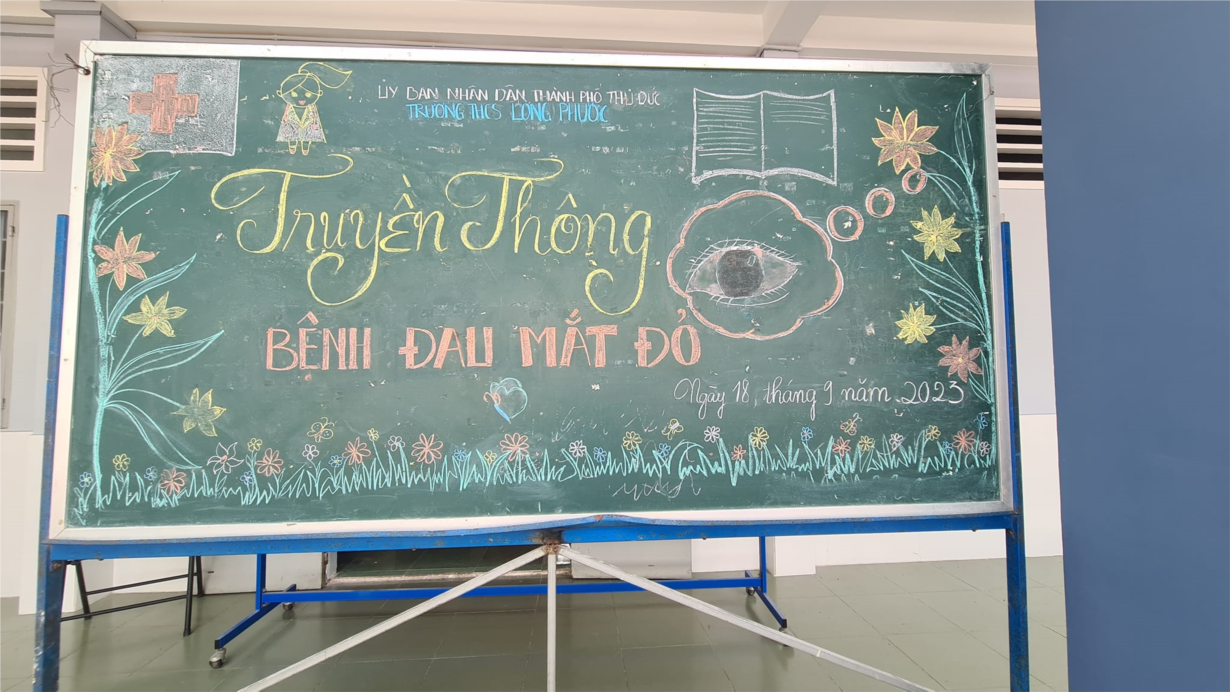 UỶ BAN NHÂN DÂN THÀNH PHỐ THỦ ĐỨC
TRƯỜNG THCS LONG PHƯỚC
Truyền Thông
BỆNH ĐAU MẮT ĐỎ
Ngày 18, tháng 9 năm 2023